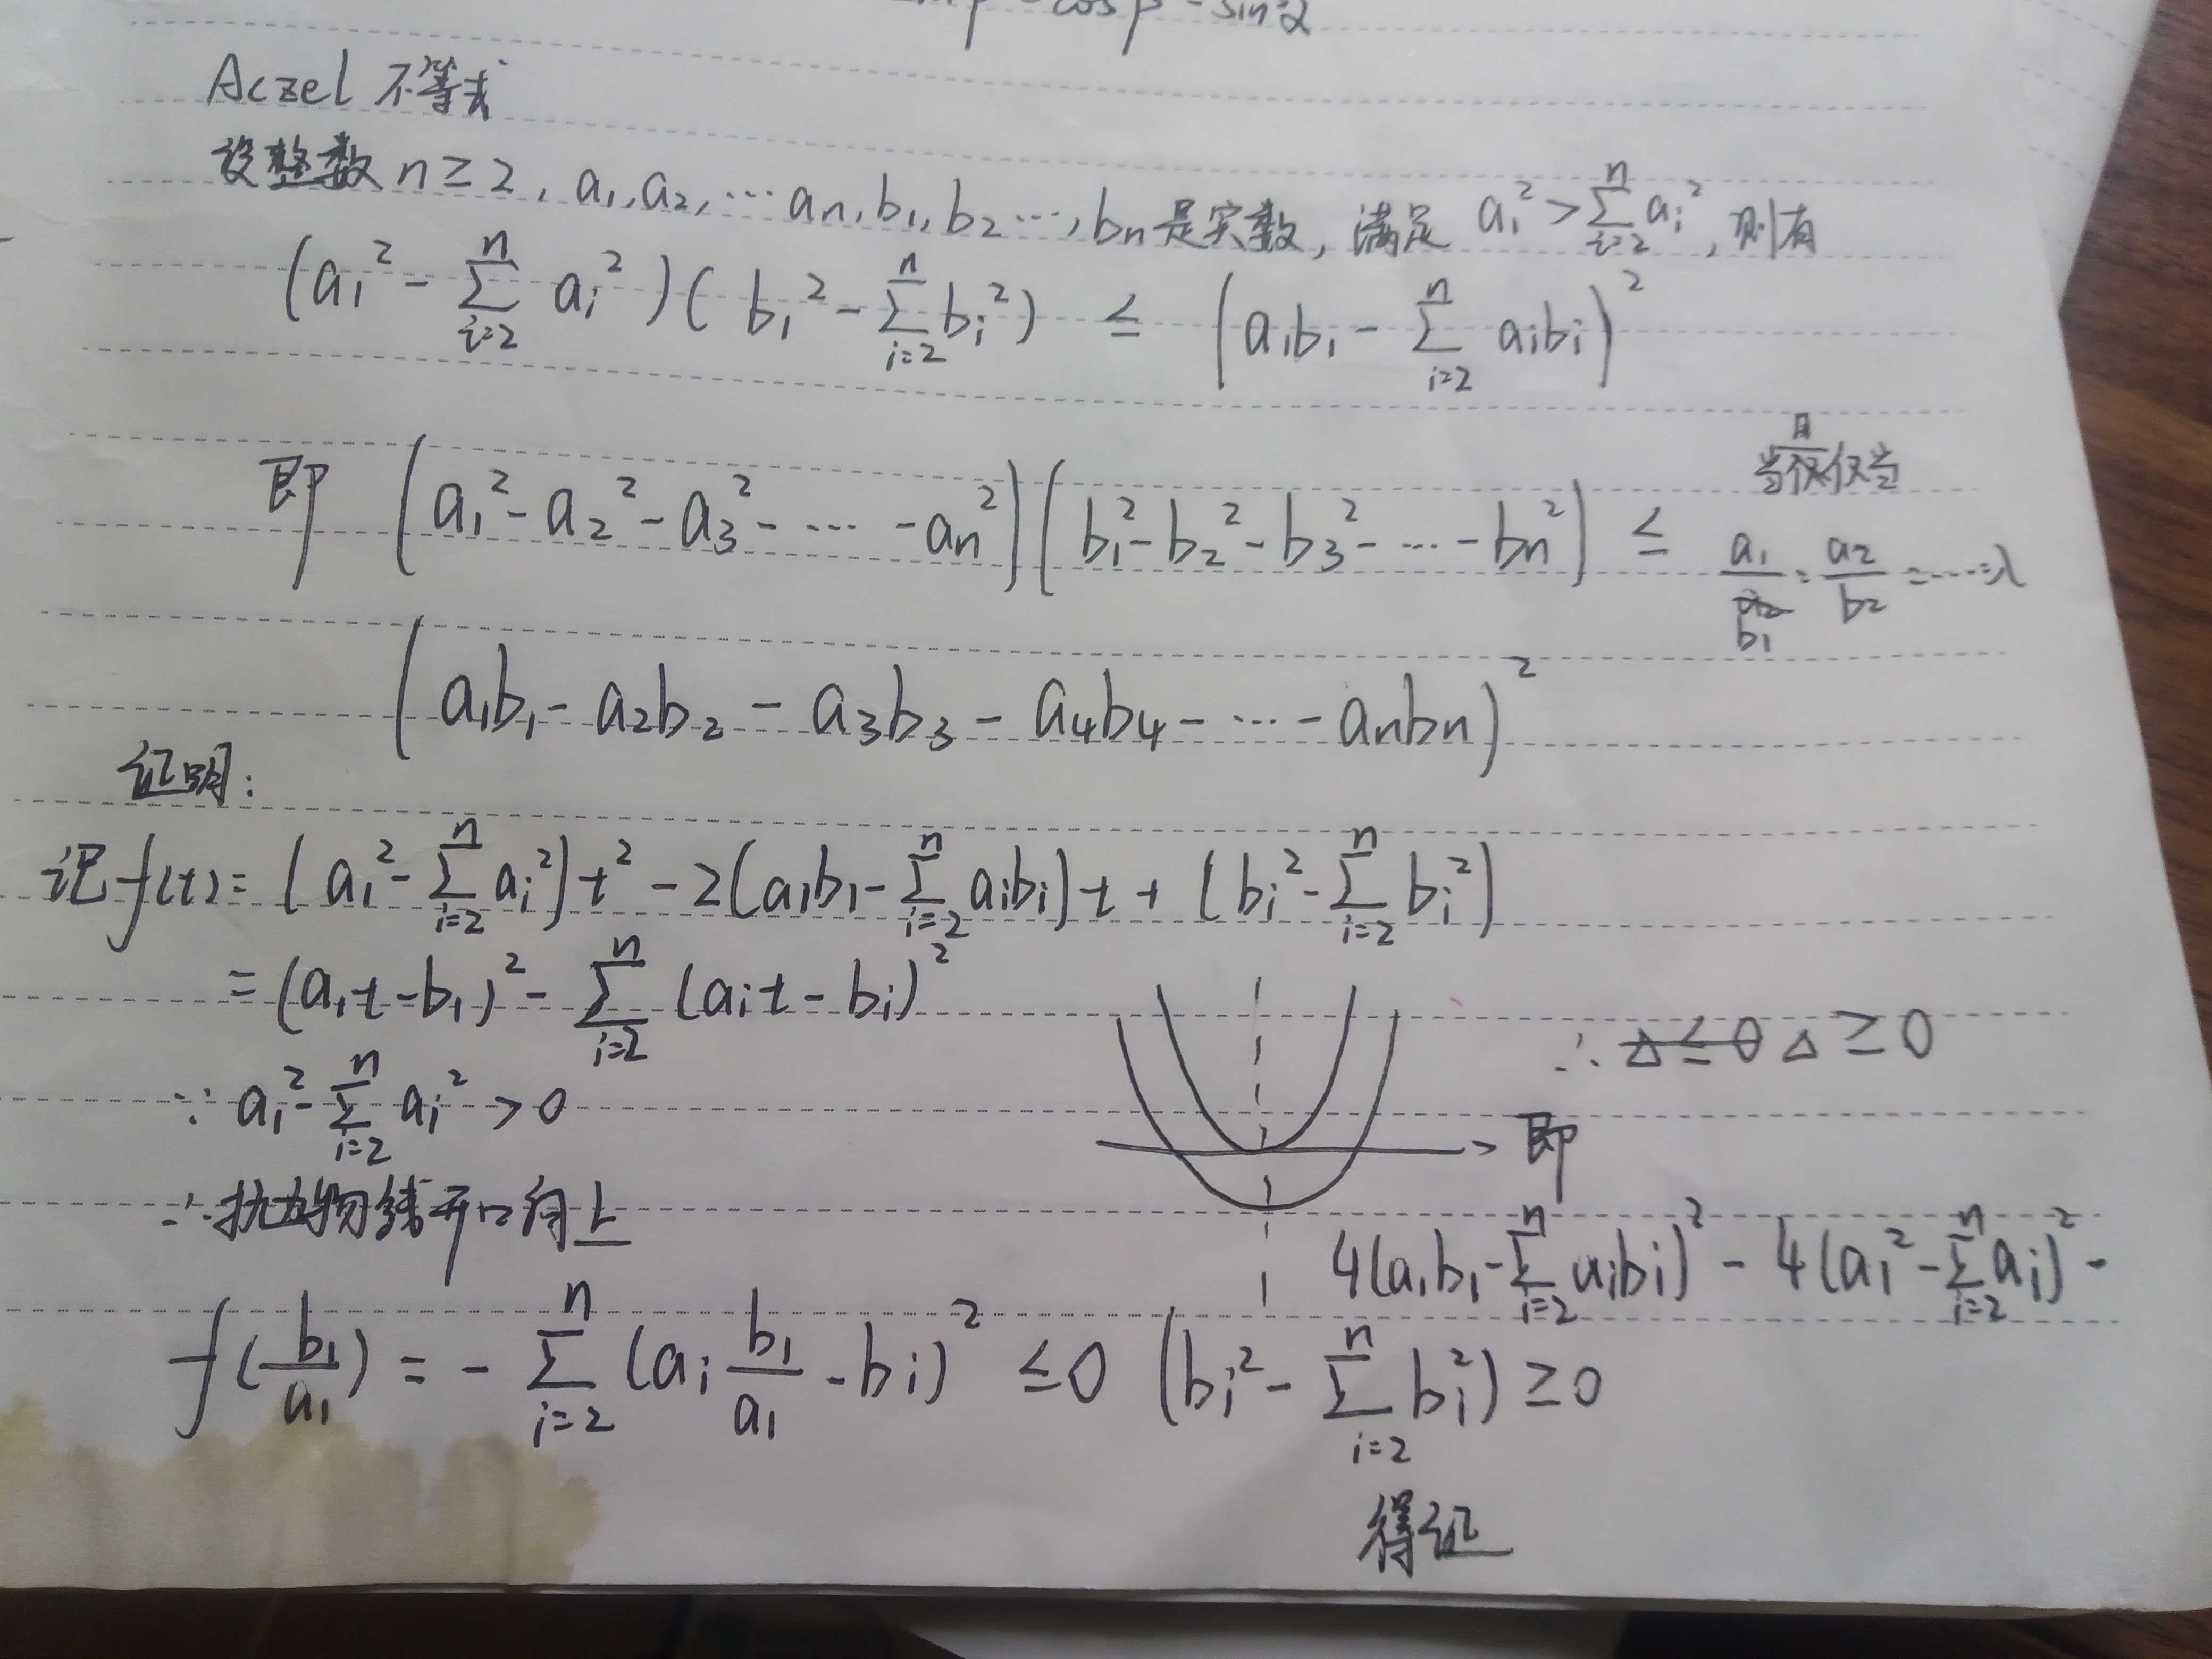 cosβ - sin²α
Aczel 不等式
设整数 n ≥ 2, a₁,a₂,…aₙ,b₁,b₂…,bₙ是实数, 满足 a₁² > ∑ᵢ₌₂ⁿ aᵢ², 则有
(a₁² - ∑ᵢ₌₂ⁿ aᵢ²)(b₁² - ∑ᵢ₌₂ⁿ bᵢ²) ≤ (a₁b₁ - ∑ᵢ₌₂ⁿ aᵢbᵢ)²
即 (a₁² - a₂² - a₃² - … - aₙ²)(b₁² - b₂² - b₃² - … - bₙ²) ≤
(a₁b₁ - a₂b₂ - a₃b₃ - a₄b₄ - … - aₙbₙ)²
当且仅当
a₁/b₁ = a₂/b₂ = … = λ
证明:
记 f(t) = (a₁² - ∑ᵢ₌₂ⁿ aᵢ²)t² - 2(a₁b₁ - ∑ᵢ₌₂ⁿ aᵢbᵢ)t + (bᵢ² - ∑ᵢ₌₂ⁿ bᵢ²)
= (a₁t - b₁)² - ∑ᵢ₌₂ⁿ (aᵢt - bᵢ)²
∵ a₁² - ∑ᵢ₌₂ⁿ aᵢ² > 0
∴ 抛物线开口向上
f(b₁/a₁) = - ∑ᵢ₌₂ⁿ (aᵢ b₁/a₁ - bᵢ)² ≤ 0
∴ Δ ≤ 0 Δ ≥ 0
即
4(a₁b₁ - ∑ᵢ₌₂ⁿ aᵢbᵢ)² - 4(a₁² - ∑ᵢ₌₂ⁿ aᵢ)² ·
(bᵢ² - ∑ᵢ₌₂ⁿ bᵢ²) ≥ 0
得证